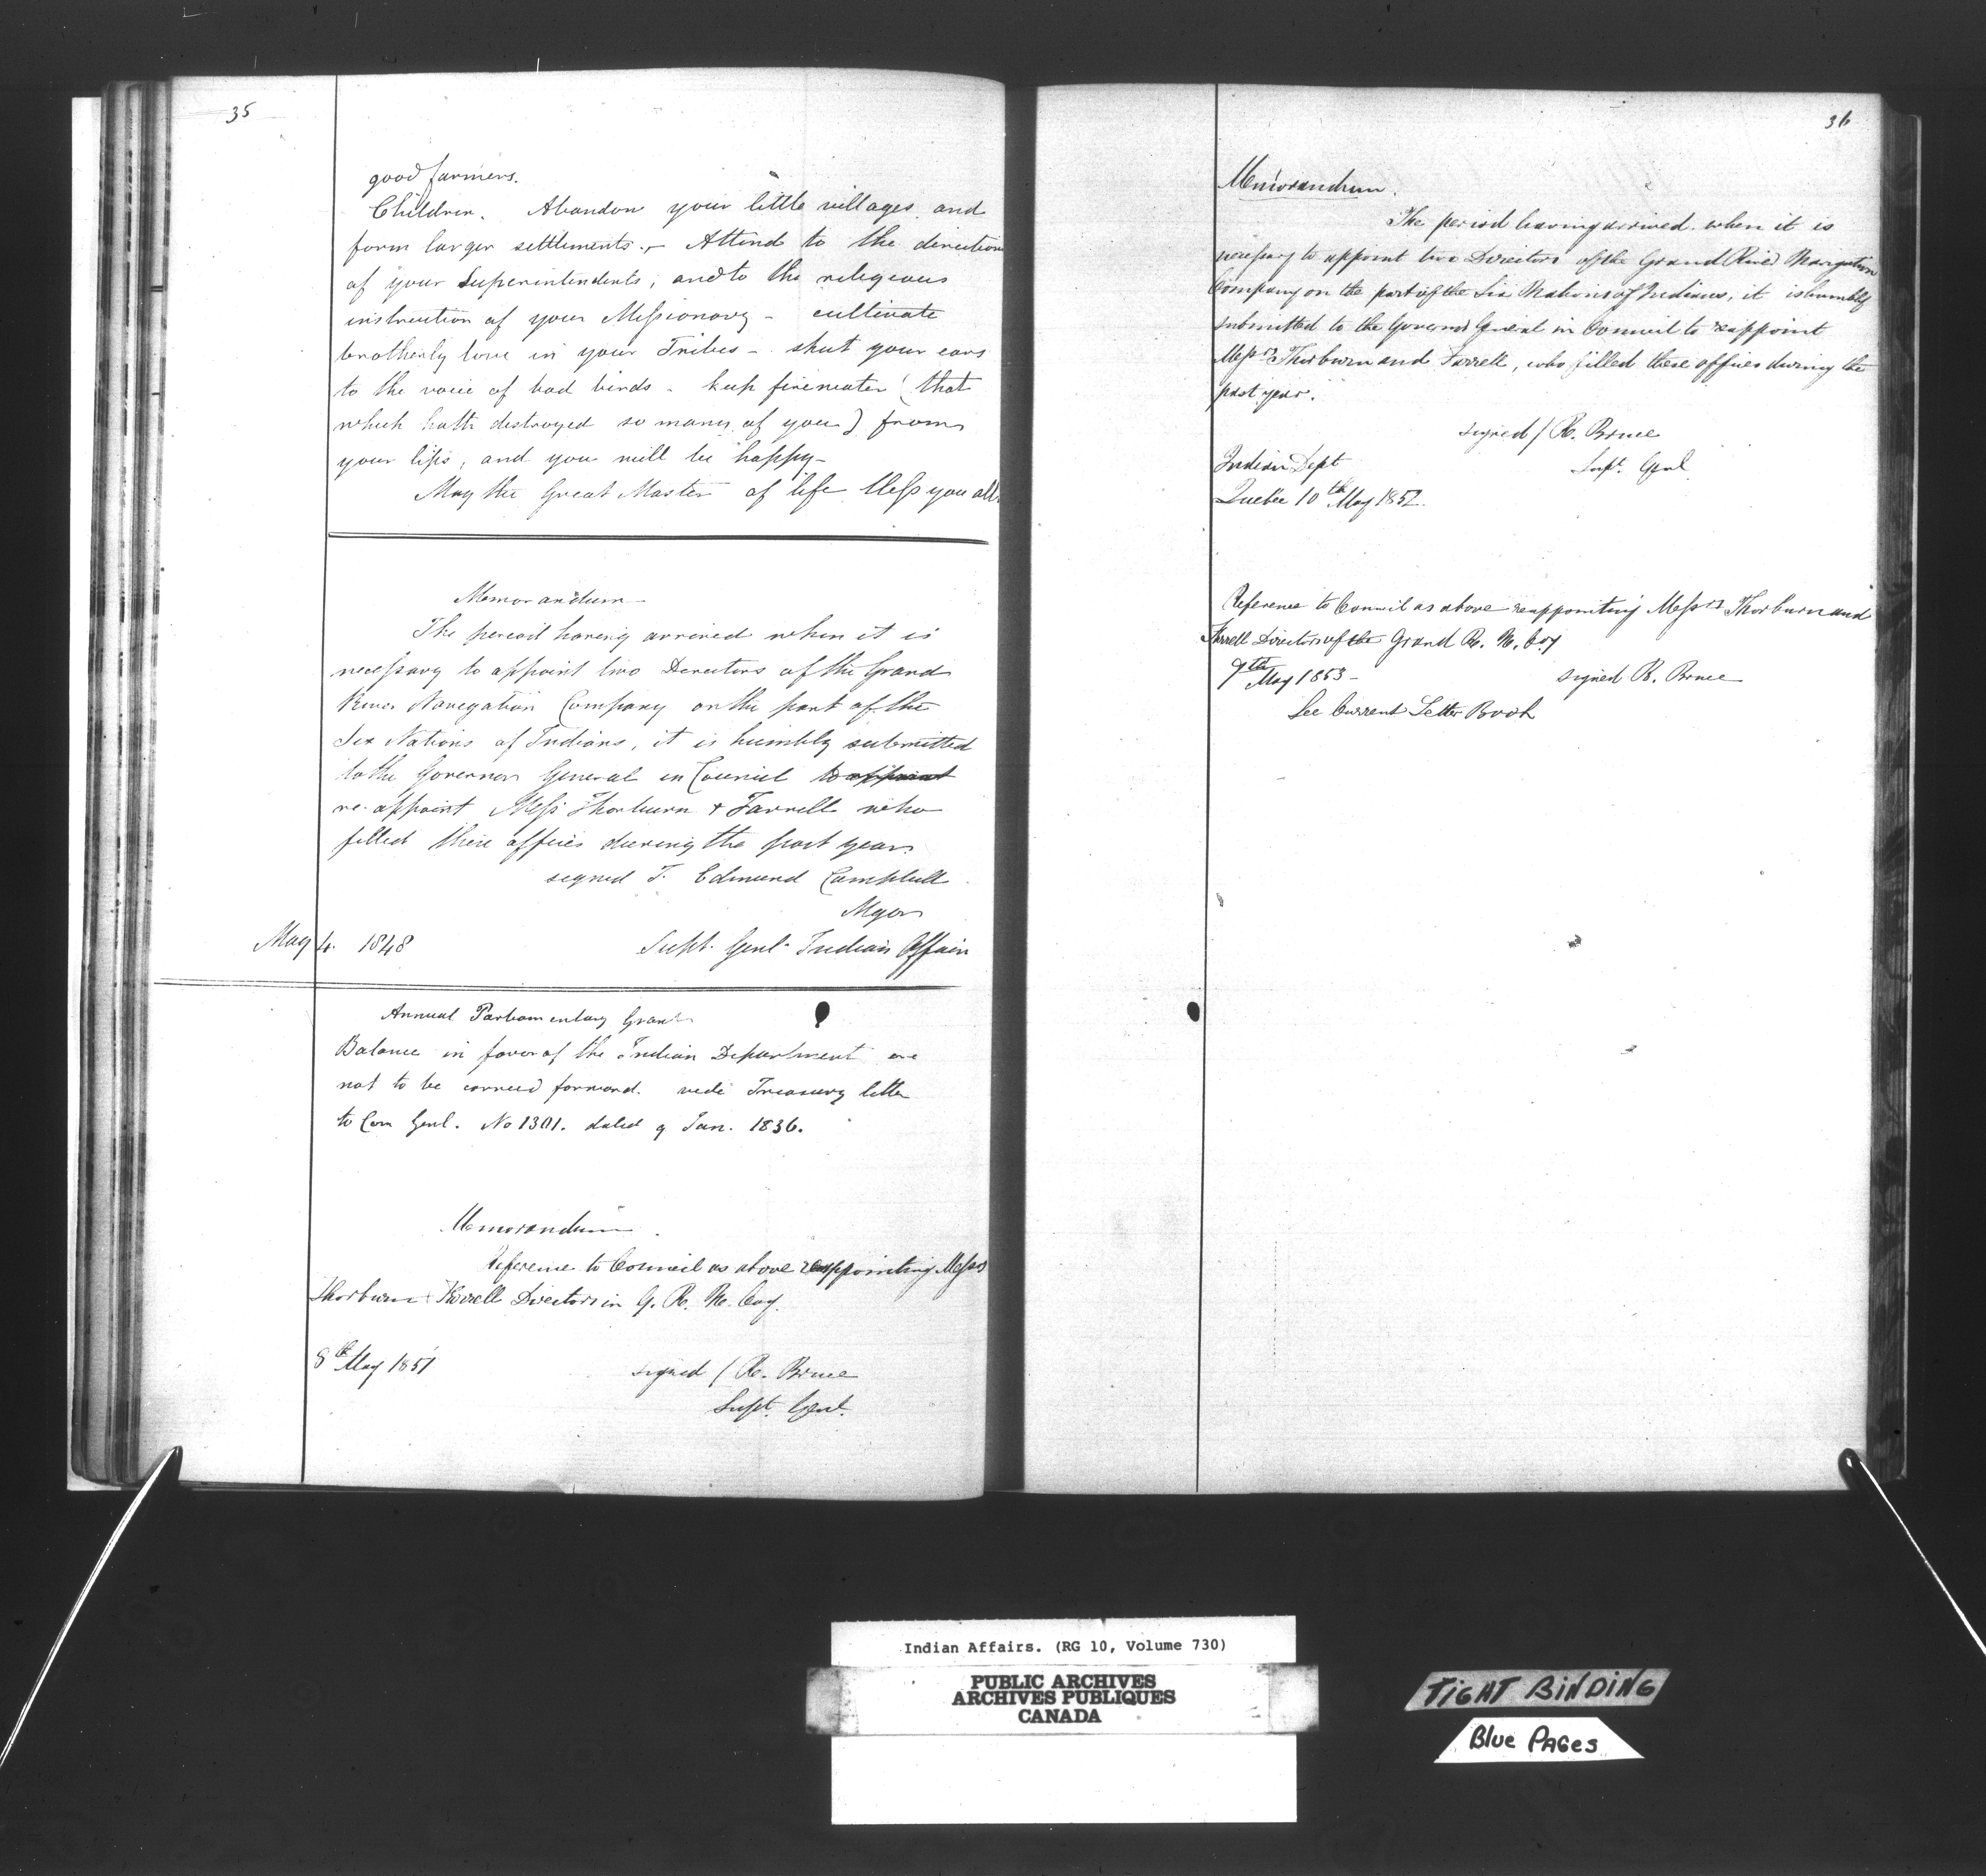 35
good farmers.
Children. Abandon your little villages and
form larger settlements. - Attend to the direction
of your Superintendents; and to the religious
instruction of your Missionary - cultivate
brotherly love in your Tribes - shut your ears
to the voice of bad birds - keep firewater (that
which hath destroyed so many of you) from
your lips, and you will be happy -
May the Great Master of life bless you all.
Memorandum
The period having arrived when it is
necessary to appoint two Directors of the Grand
River Navigation Company on the part of the
Six Nations of Indians, it is humbly submitted
to the Governor General in Council to appoint
re-appoint Mess Thorburn & Farrell who
filled these offices during the past year.
signed T. Edmund Campbell
Major
May 4. 1848 Supt. Genl. Indian Affairs
Annual Parliamentary Grant
Balance in favor of the Indian Department are
not to be carried forward. vide Treasury letter
to Com Genl. No 1301. dated 9 Jan. 1836.
Memorandum
Reference to Council as above reappointing Messrs
Thorburn & Farrell Directors in G. R. N. Coy.
8th May 1851 signed / R. Bruce
Supt. Genl.
36
Memorandum.
The period having arrived when it is
necessary to appoint two Directors of the Grand River Navigation
Company on the part of the Six Nations of Indians, it is humbly
submitted to the Governor General in Council to reappoint
Messrs Thorburn and Farrell, who filled these offices during the
past year.
signed / R. Bruce
Indian Dept Supt. Genl
Quebec 10th May 1852.
Reference to Council as above reappointing Messrs Thorburn and
Farrell Directors of the Grand R. N. Coy
9th May 1853 - signed R. Bruce
See Current Letter Book
Indian Affairs. (RG 10, Volume 730)
PUBLIC ARCHIVES
ARCHIVES PUBLIQUES
CANADA
TIGHT BINDING
Blue PAGES